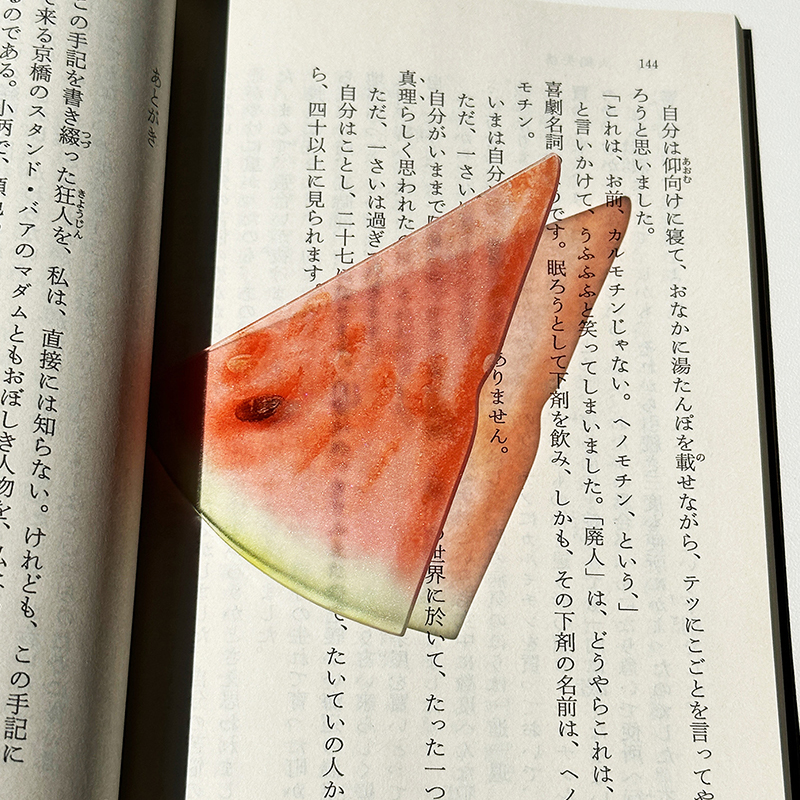 144
自分は仰向けに寝て、おなかに湯たんぽを載せながら、テツにこごとを言ってや
ろうと思いました。
「これは、お前、カルモチンじゃない。ヘノモチン、という、」
と言いかけて、うふふふと笑ってしまいました。「廃人」は、どうやらこれは、
喜劇名詞のようです。眠ろうとして下剤を飲み、しかも、その下剤の名前は、ヘノ
モチン。
いまは自分 ありません。
ただ、一さい
自分がいままで 世界に於いて、たった一つ
真理らしく思われた
ただ、一さいは過ぎ
自分はことし、二十七 、たいていの人か
ら、四十以上に見られます。
あとがき
この手記を書き綴った狂人を、私は、直接には知らない。けれども、この手記に
て来る京橋のスタンド・バアのマダムともおぼしき人物を、
るのである。小柄で、